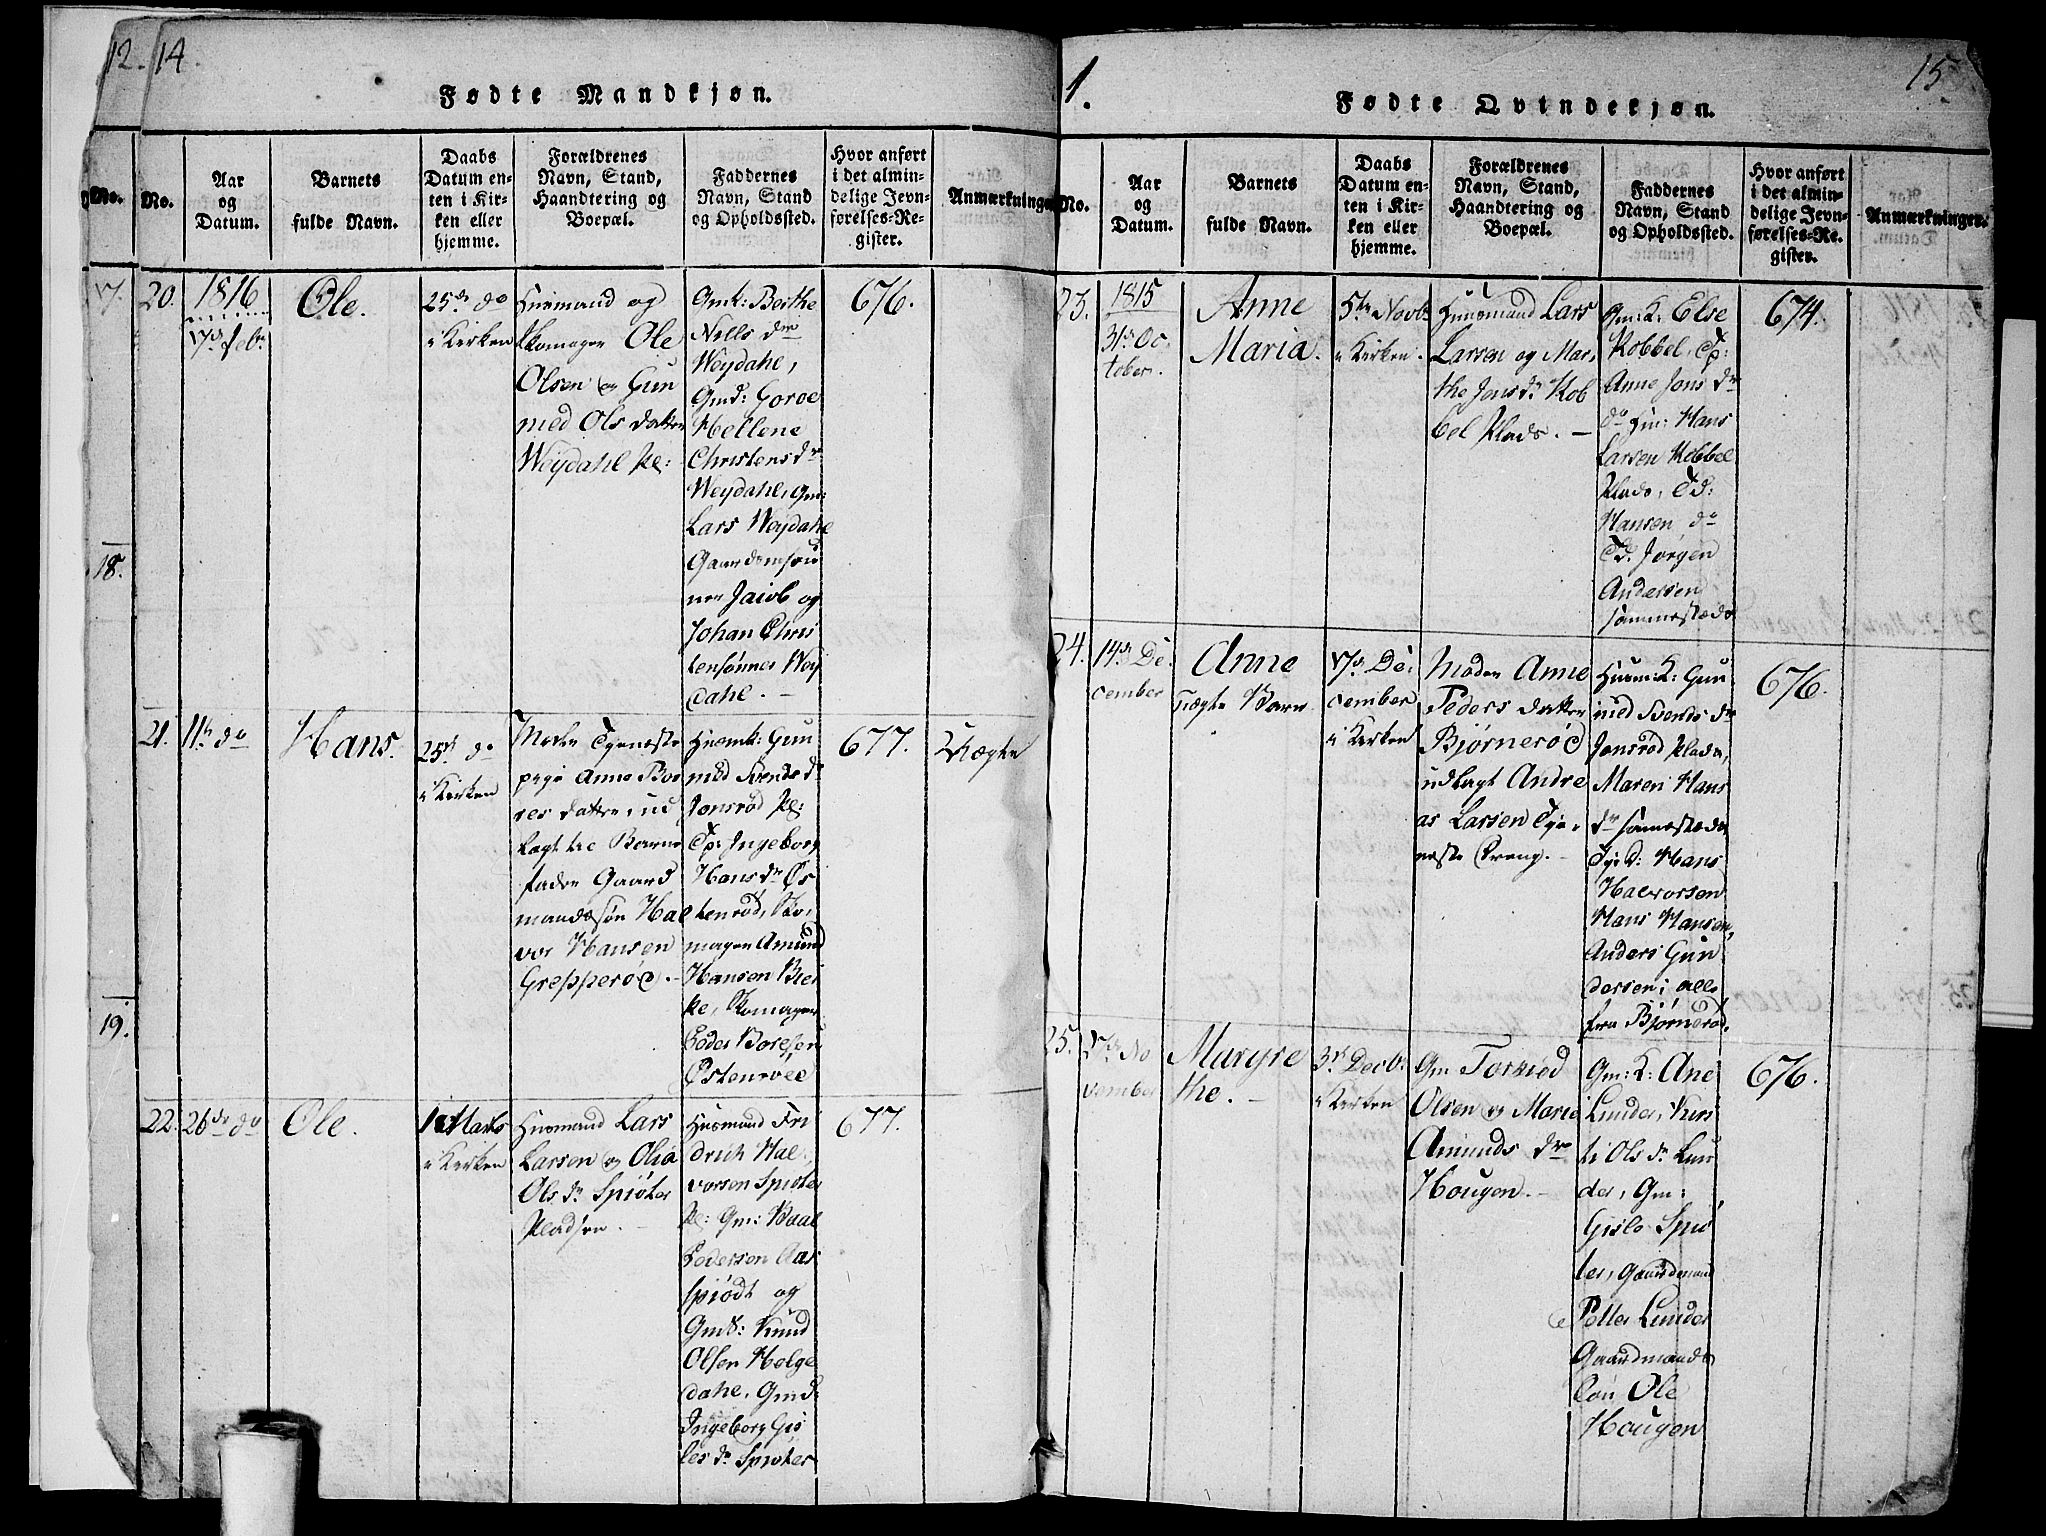 12. 14.
Fødte Mandkjøn.
No.
No.
Aar
og
Datum.
Barnets
fulde Navn.
Daabs
Datum en-
ten i Kir-
ken eller
hjemme.
Forældrenes
Navn, Stand,
Haandtering og
Boepæl.
Faddernes
Navn, Stand
og Opholdssted.
Hvor anført
i det almin-
delige Jevn-
førelses-Re-
gister.
Anmærkninger
17.
18.
19.
20.
1816
17d Febr
Ole.
25d do
i Kirken
Huusmand og
Skomager Ole
Olsen og Gun
ned Ols datter
Weydahl Pl:
Gmk: Berthe
Nills dr
Weydahl,
Gmd: Goroe
Hellene
Christens dr
Weydahl, Gm:
Lars Weydahl
Gaardmsøn
ner Jacob og
Johan Chris
tensønner Wey
dahl. –
676.
21.
11te do
Hans.
25d do
i Kirken
Moder Tjeneste
pige Anne Bor
res datter, ud
lagt til Barne
fader Gaard
mandssøn Hal
vor Hansen
Grepperød. –
Husmk: Gun
ned Svends dr
Jonsrød Pl:
Tp: Ingeborg
Hans dr Øs
tenrød, Sko,
mager Amund
Hansen Bref
ke, Skomager
Peder Boresen
Østenroed
677.
Uægte
22.
26de do
Ole.
1 Marts
i Kirken
Husmand Lars
Larsen og Olia
Ols dr Spiøter
Pladsen. –
Husmand Fri
drich Hal,
vorsen Spiøter
Pl: Gm: Paal
Pedersen Aas
spiødt og
GmS: Knud
Olsen Helge
dahl, Gmd:
Ingeborg Gis
les dr Spiøter
677.
1.
15.
Fødte Qvindekjøn.
No.
Aar
og
Datum.
Barnets
fulde Navn.
Daabs
Datum en-
ten i Kir-
ken eller
hjemme.
Forældrenes
Navn, Stand,
Haandtering og
Boepæl.
Faddernes
Navn, Stand
og Opholdssted.
Hvor anført
i det almin-
delige Jevn-
førelses-Re-
gister.
Anmærkninger.
23.
1815
31d Oc
tober.
Anne
Maria.
5te Novb:
i Kirken.
Huusmand Lars
Larsen og Mar,
the Jens dr Kob
bel Plads. –
Gm: K: Else
Kobbel, Tp:
Anne Jons dr
do Hm: Hans
Larsen Kobbel
Plads, Td:
Hansen do
Td: Jørgen
Andersen
sammesteds
674.
24.
14d De
cember
Anne
uægte Barn
17d De,
cember
i Kirken
Moder Anne
Peders datter
Bjørnerød
udlagt Andre
as Larsen Tje,
neste Dreng. –
Husm: K: Gun
ned Svends dr
Jonsrød Plads,
Maren Hans
dr sammesteds
Tje: d: Hans
Halvorsen
Hans Hansen,
Anders Gun
dersen; alle
fra Bjørnerød.
676.
25.
27d No
vember
Margre
the. –
3d Decb:
i Kirken
Gm Torkiød
Olsen og Marie
Amunds dr
Hougen. –
Gm: K: Ane
Lunder, Kirs
ti Ols dr Lun
der, Gm:
Gisle Spiø
ter, Gaardmand
Petter Lunder
Gaardmands
søn Ole
Hougen
676.